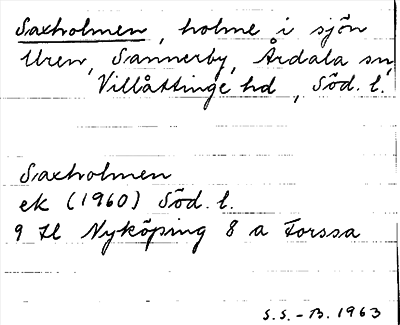 Saxholmen, holme i sjön
Uren, Sannerby, Årdala sn,
Villåttinge hd, Söd. l.
Saxholmen
ek (1960) Söd. l.
9 H Nyköping 8 a Forssa
S.S.-B. 1963